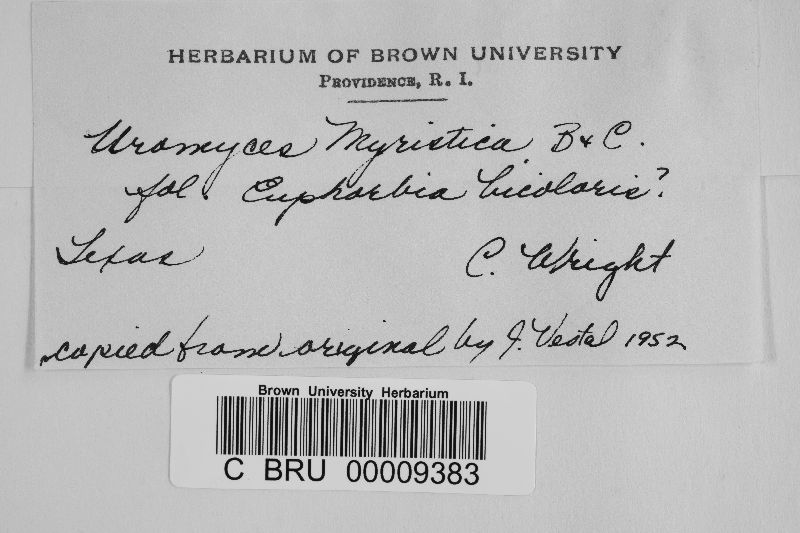 HERBARIUM OF BROWN UNIVERSITY
PROVIDENCE, R. I.
Uromyces Myristica B & C.
fol. Euphorbia bicoloris?
Texas C. Wright
copied from original by J. Vestal 1952
Brown University Herbarium
C BRU 00009383